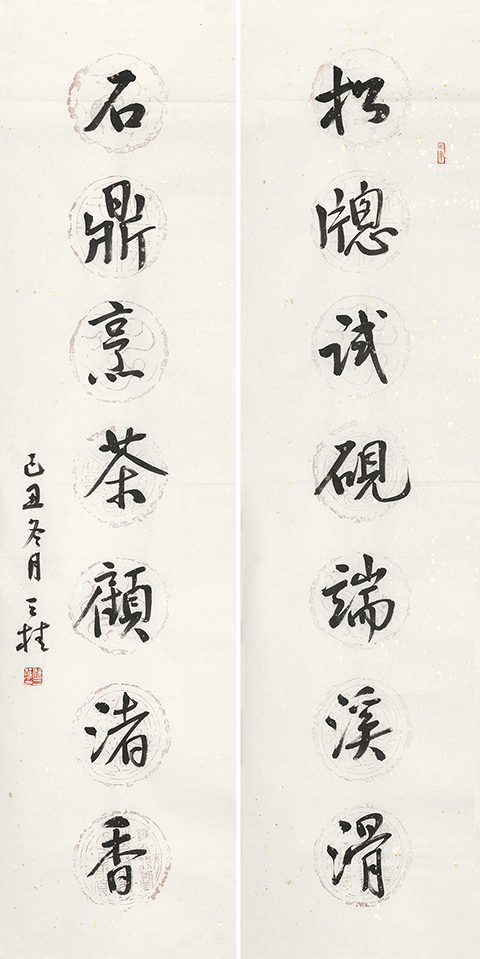 松牕試硯端溪滑
石鼎烹茶顧渚香
己丑冬月三桂